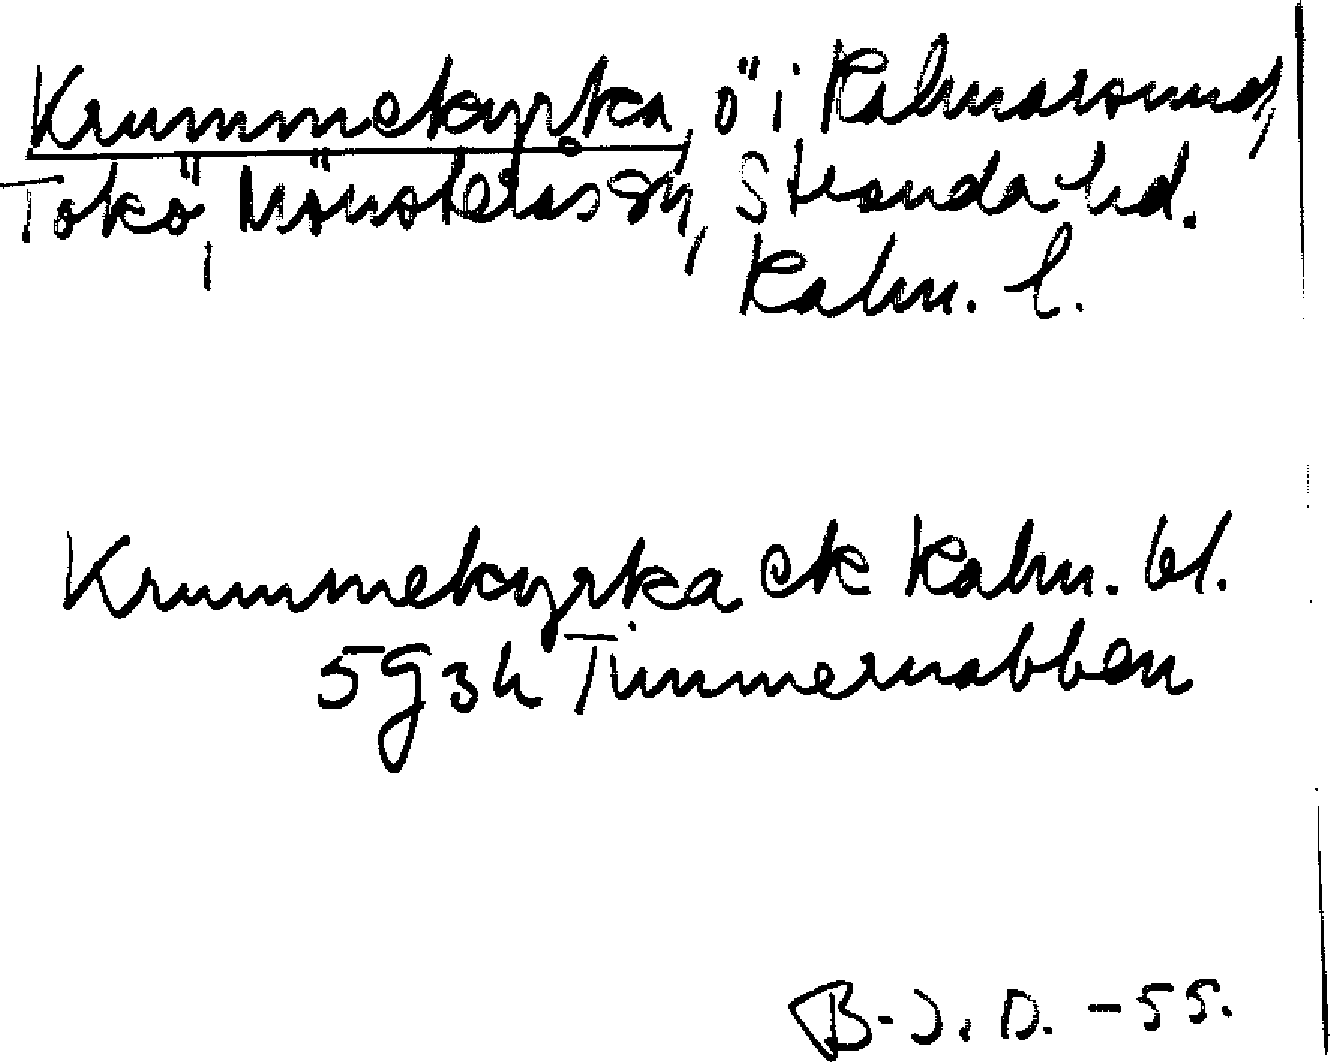 Krummekyrka, ö i Kalmarsund,
Tokö, Mönsterås sn, Stranda hd.
Kalm. l.
Krummekyrka ek Kalm. bl.
5g3h Timmernabben
B-J. D. -55.